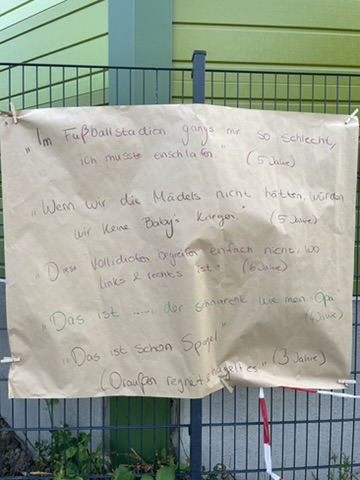 „Im Fußballstadion gangs mir so schlecht,
ich musste einschlafen." (5 Jahre)
„Wenn wir die Mädels nicht hätten, würden
wir keine Baby's kriegen." (5 Jahre)
„Diese Vollidioten begreifen einfach nicht, wo
links & rechts ist." (6 Jahre)
„Das ist ...., der schnarcht wie mein Opa"
(4 Jahre)
„Das ist schon Spagel"
(Draußen regnet & hagelt es" (3 Jahre)